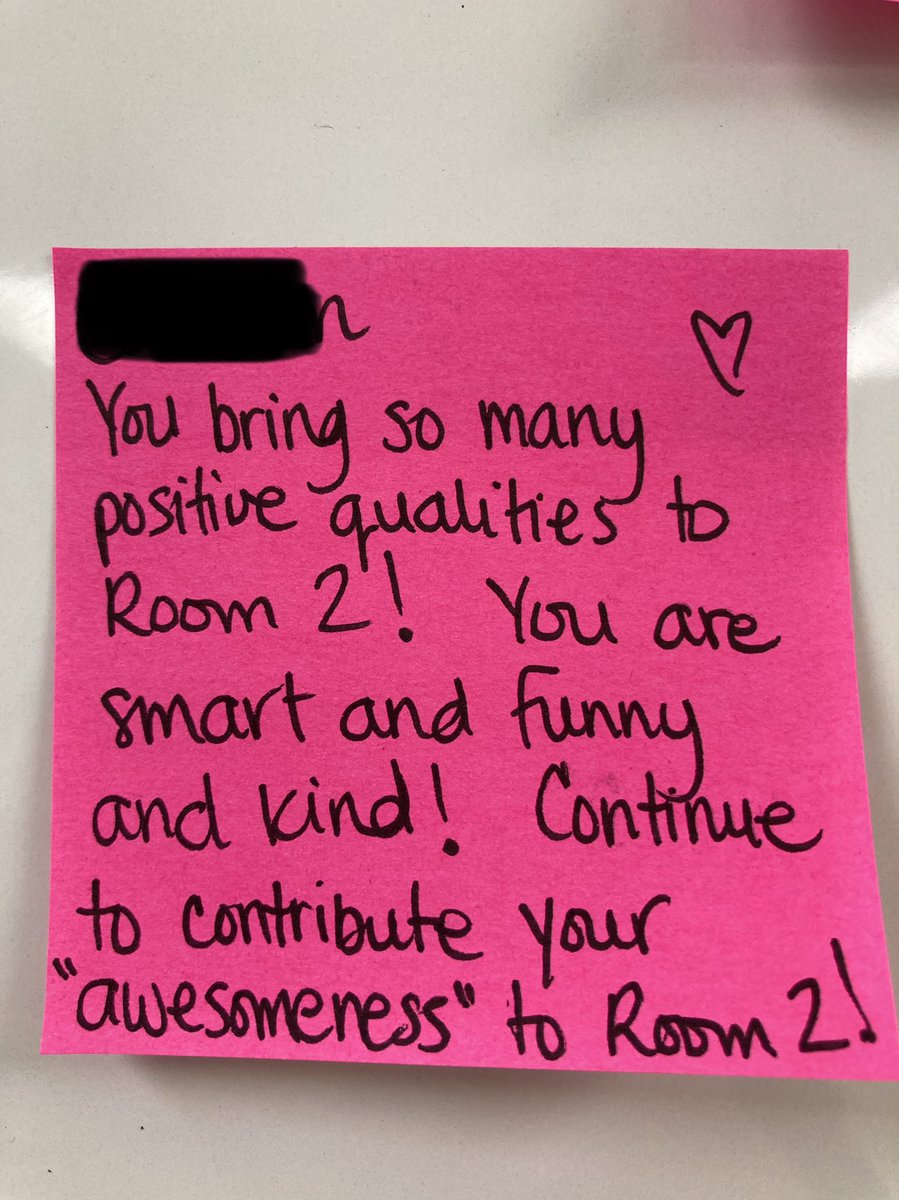 You bring so many
positive qualities to
Room 2! You are
smart and funny
and kind! Continue
to contribute your
"awesomeness" to Room 2!